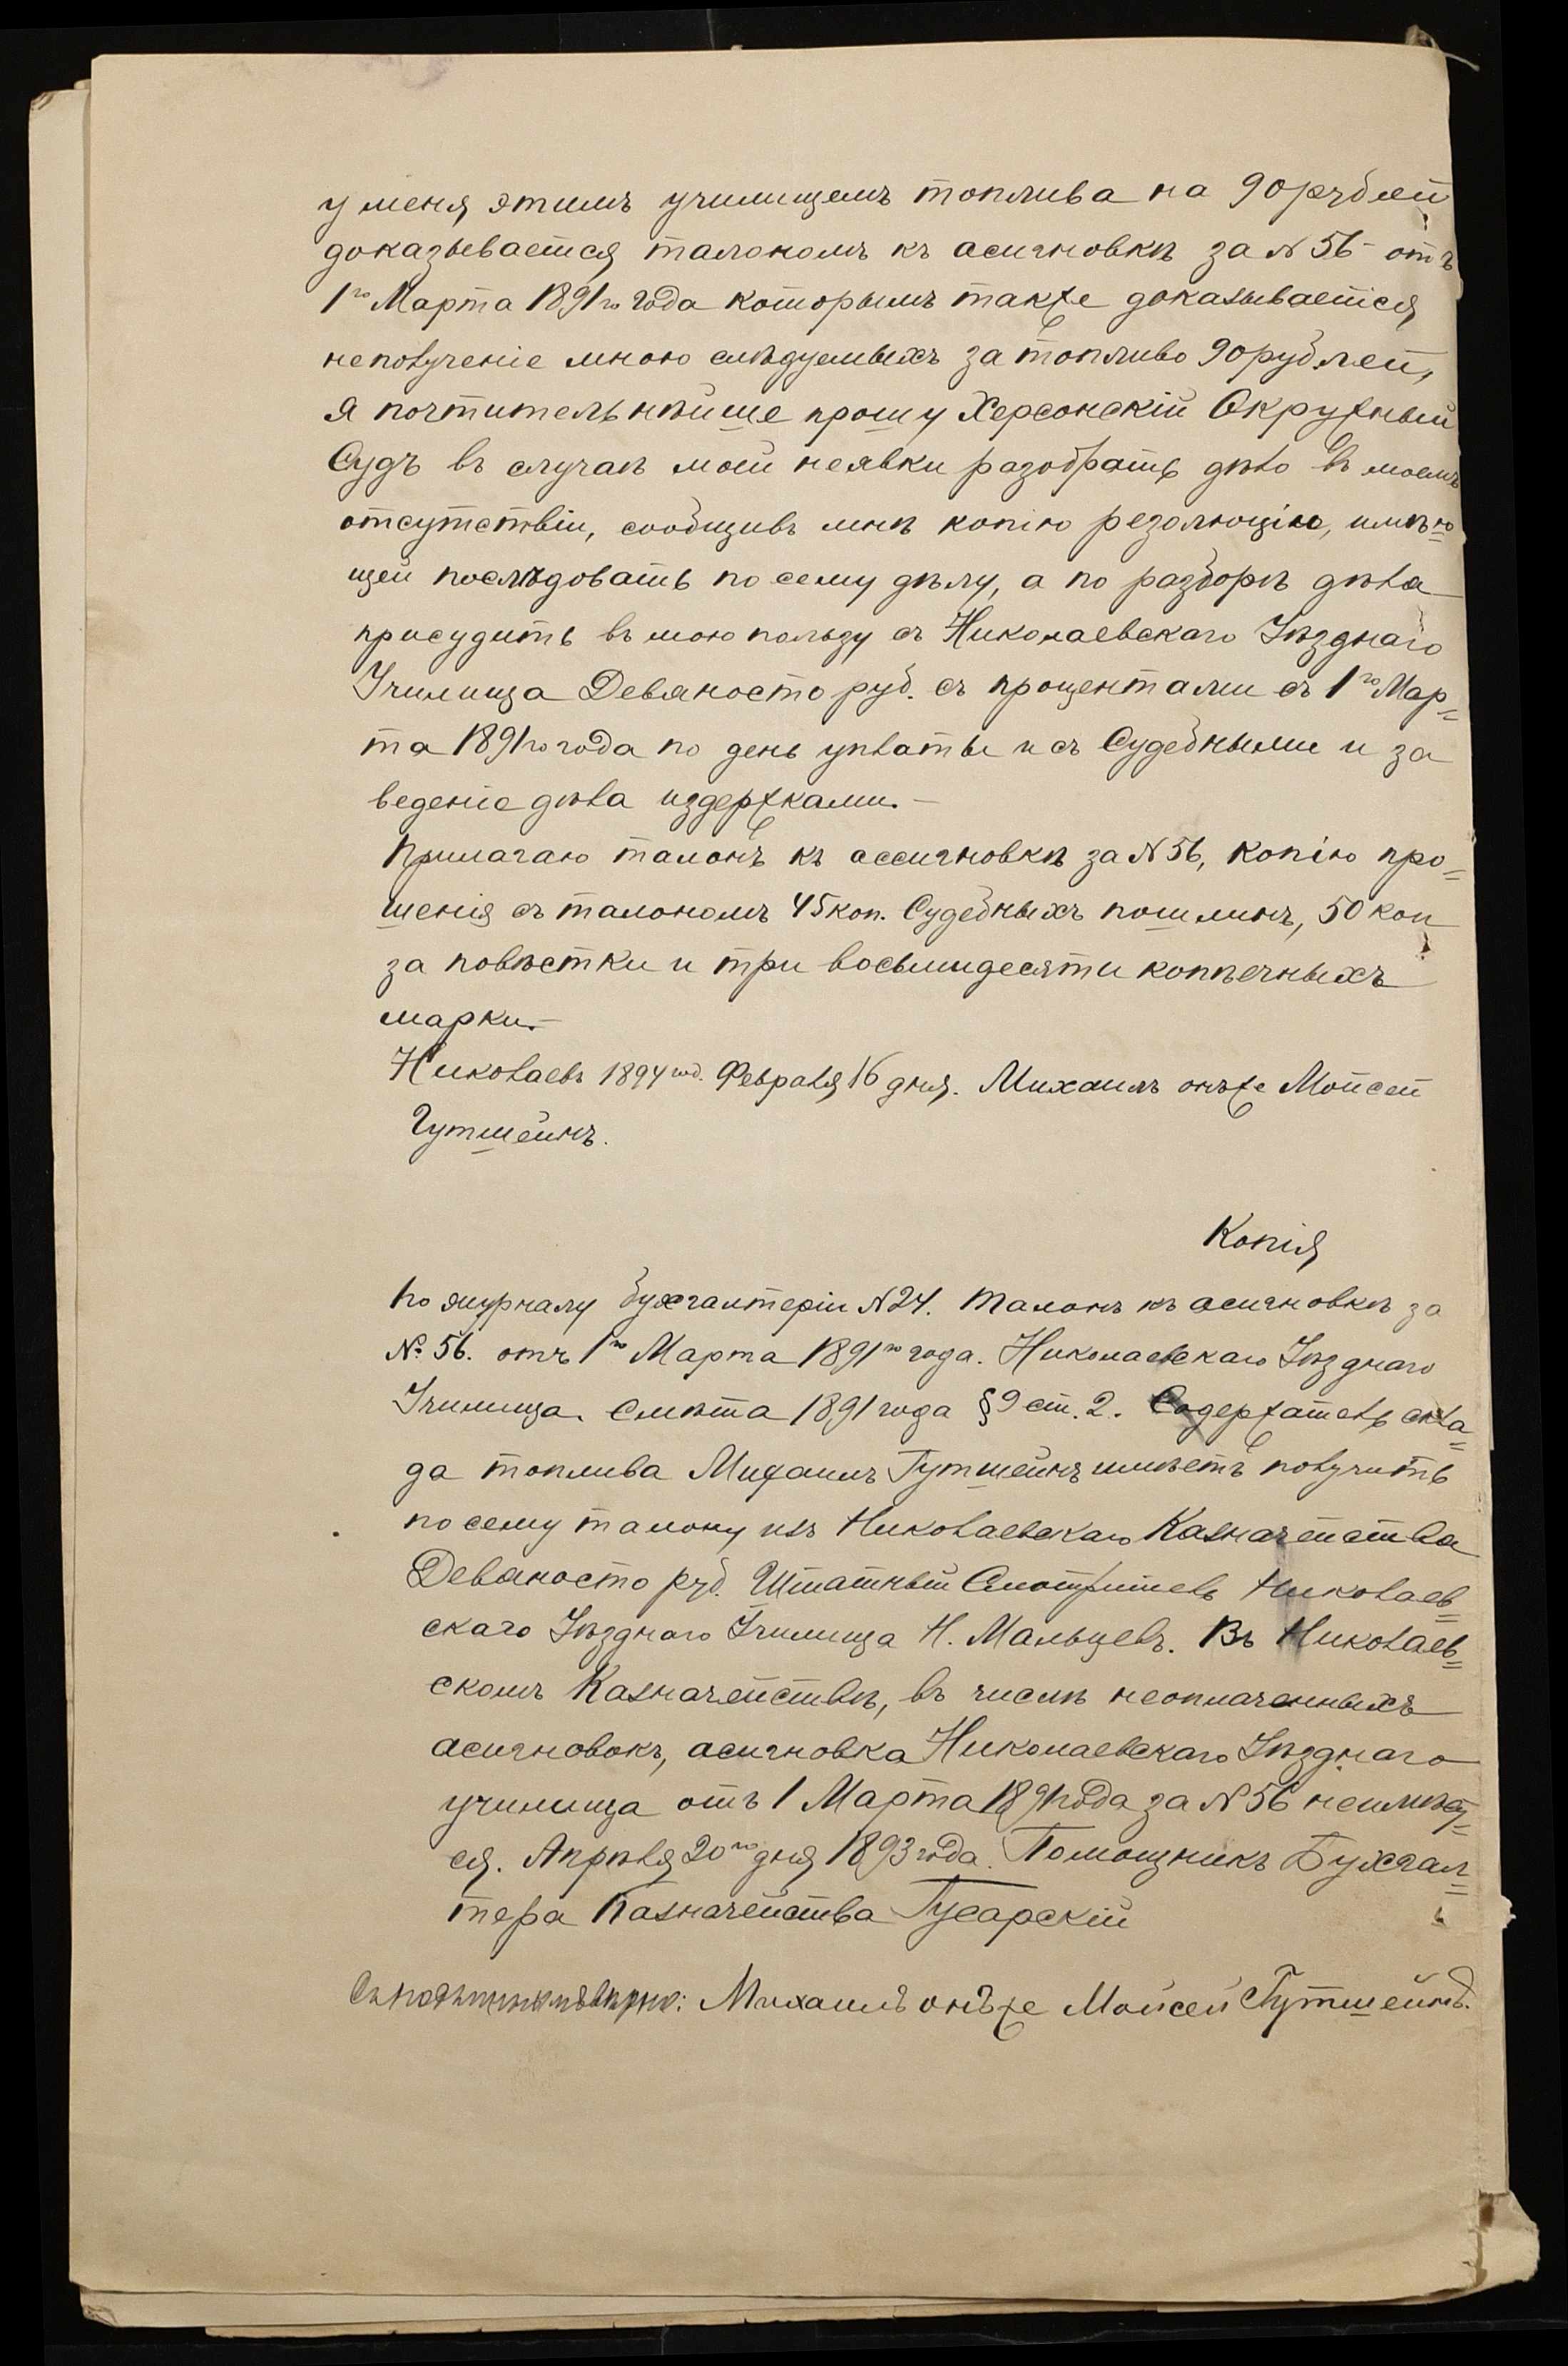 у меня этимъ училищемъ топлива на 90 рублей
доказывается талономъ къ асигновкѣ за N 56 – отъ
1го Марта 1891го года которымъ также доказывается
неполученіе мною слѣдуемыхъ за топливо 90 рублей,
я почтительнѣйше прошу Херсонскій Окружный
Судъ въ случаѣ моей неявки разобрать дѣло въ моемъ
отсутствіи, сообщивъ мнѣ копію резолюцію, имѣю=
щей послѣдовать по сему дѣлу, а по разборѣ дѣла
присудить въ мою пользу съ Николаевскаго Уѣзднаго
Училища Девяносто руб. съ процентами съ 1го Мар=
та 1891го года по день уплаты и съ Судебными и за
веденіе дѣла издержками. –
Прилагаю талонъ къ ассигновкѣ за N 56, копію про=
шенія съ талономъ 45 коп. Судебныхъ пошлинъ, 50 коп
за повѣстки и три восьмидесяти копѣечныхъ
марки. –
Николаевъ 1894 год. Февраля 16 дня. Михаилъ онъже Мойсей
Гутшейнъ.
Копія
По журналу бухгалтеріи N 24. Талонъ къ асигновкѣ за
№ 56. отъ 1го Марта 1891го года. Николаевскаго Уѣзднаго
Училища. Смѣта 1891 года § 9 ст. 2. Содержатель скла=
да топлива Михаилъ Гутшейнъ имѣетъ получить
по сему талону изъ Николаевскаго Казначейства
Девяносто руб. Штатный Смотритель Николаев=
скаго Уѣзднаго Училища Н. Мальцевъ. Въ Николаев=
скомъ Казначействѣ, въ числѣ неоплаченныхъ
асигновокъ, асигновка Николаевскаго Уѣзднаго
училища отъ 1 Марта 1891 года за N 56 неимѣет=
ся. Апрѣля 20го дня 1893 года. Помощникъ Бухгал=
тера Казначейства Гусарскій
Съ подлиннымъ вѣрно: Михаилъ онъже Мойсей Гутшейнъ.